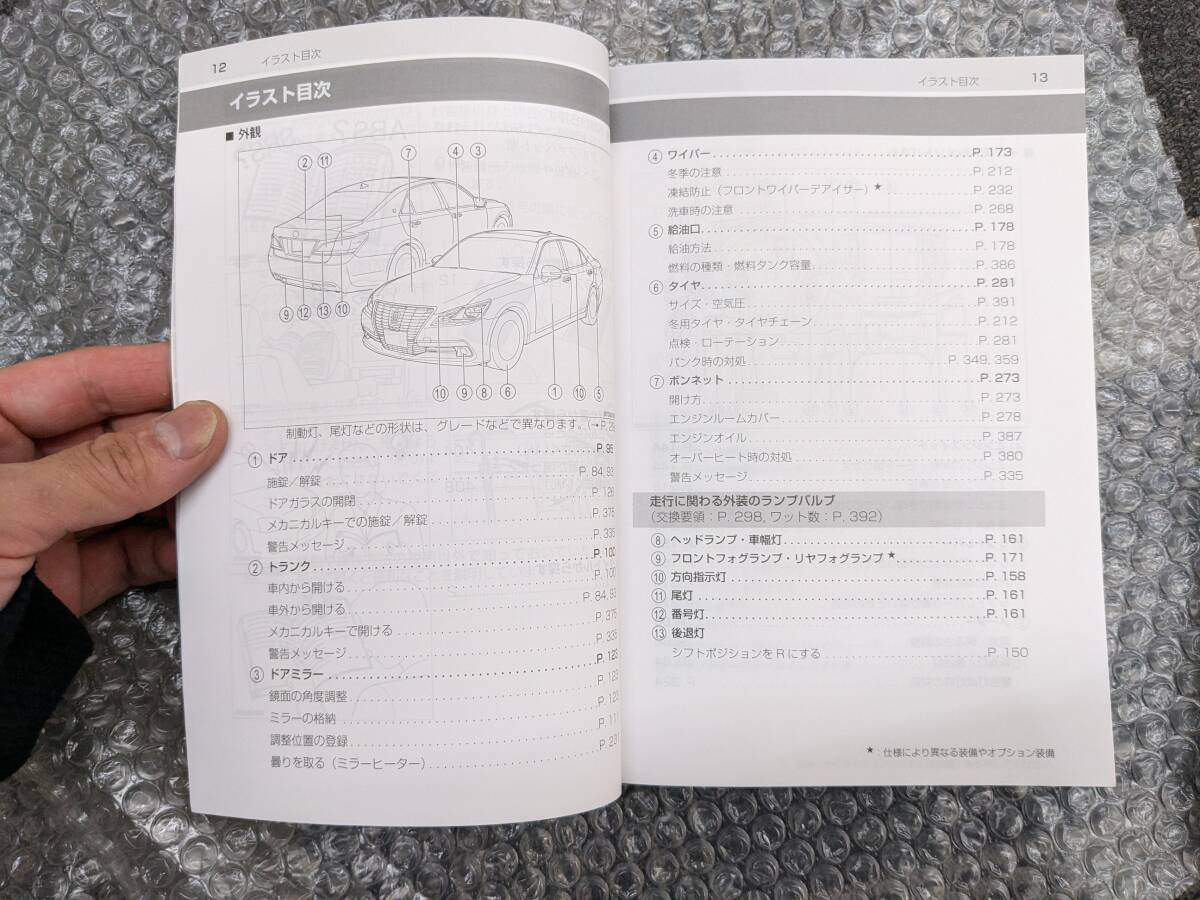 12 イラスト目次
イラスト目次
■ 外観
② ⑪ ⑦ ④ ③
⑨ ⑫ ⑬ ⑩
⑩ ⑨ ⑧ ⑥ ① ⑩ ⑤
制動灯、尾灯などの形状は、グレードなどで異なります。(→P.
① ドア P. 95
施錠/解錠 P. 84, 93
ドアガラスの開閉 P. 126
メカニカルキーでの施錠/解錠 P. 375
警告メッセージ P. 335
② トランク P. 100
車内から開ける P. 100
車外から開ける P. 84, 93
メカニカルキーで開ける P. 375
警告メッセージ P. 335
③ ドアミラー P. 123
鏡面の角度調整 P. 123
ミラーの格納 P. 123
調整位置の登録 P. 11
曇りを取る(ミラーヒーター) P. 231
イラスト目次 13
④ ワイパー P. 173
冬季の注意 P. 212
凍結防止(フロントワイパーデアイサー)★ P. 232
洗車時の注意 P. 268
⑤ 給油口 P. 178
給油方法 P. 178
燃料の種類・燃料タンク容量 P. 386
⑥ タイヤ P. 281
サイズ・空気圧 P. 391
冬用タイヤ・タイヤチェーン P. 212
点検・ローテーション P. 281
パンク時の対処 P. 349, 359
⑦ ボンネット P. 273
開け方 P. 273
エンジンルームカバー P. 278
エンジンオイル P. 387
オーバーヒート時の対処 P. 380
警告メッセージ P. 335
走行に関わる外装のランプバルブ
(交換要領:P. 298, ワット数:P. 392)
⑧ ヘッドランプ・車幅灯 P. 161
⑨ フロントフォグランプ・リヤフォグランプ★ P. 171
⑩ 方向指示灯 P. 158
⑪ 尾灯 P. 161
⑫ 番号灯 P. 161
⑬ 後退灯
シフトポジションをRにする P. 150
★:仕様により異なる装備やオプション装備